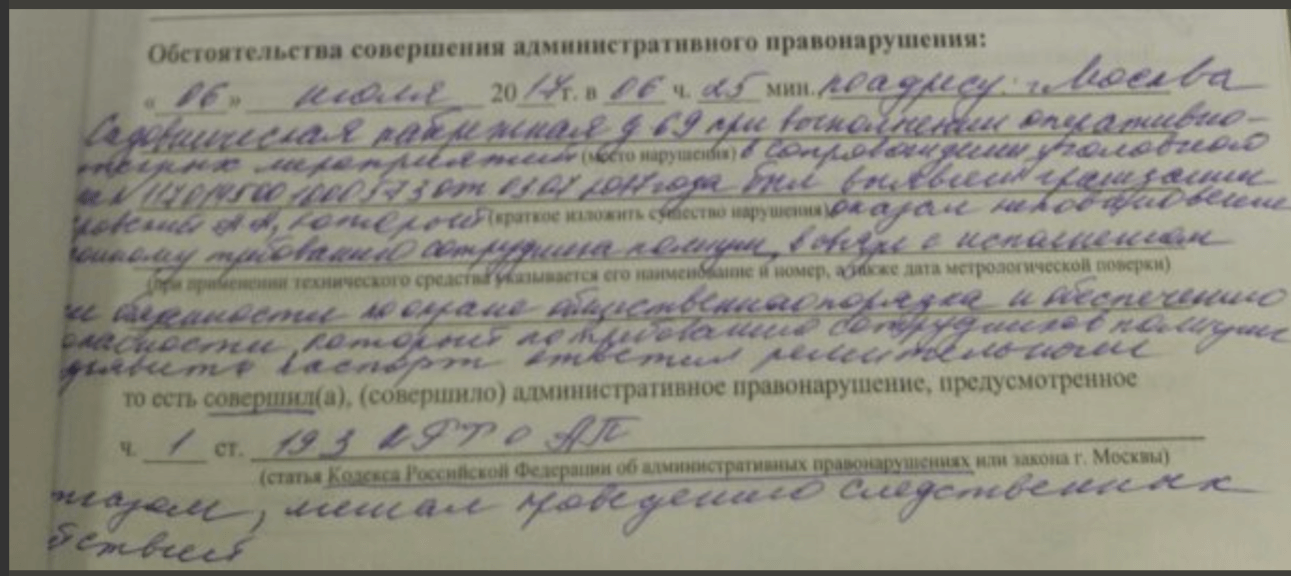 Обстоятельства совершения административного правонарушения:
« 06 » июля 20 17 г. в 06 ч. 25 мин., по адресу: г. Москва
Садовническая набережная д 69 при выполнении оперативно-
мероприятий (место нарушения) в сопровождении уголовного
года был выявлен гражданин
который (краткое изложить существо нарушения) оказал неповиновение
требованию сотрудника полиции, в связи с исполнением
(при применении технического средства указывается его наименование и номер, а также дата метрологической поверки)
обязанности по охране общественного порядка и обеспечению
который по требованию сотрудников полиции
паспорт ответил решительным
то есть совершил(а), (совершило) административное правонарушение, предусмотренное
ч. 1 ст. 19 3 КРФ о АП
(статья Кодекса Российской Федерации об административных правонарушениях или закона г. Москвы)
мешал проведению следственных